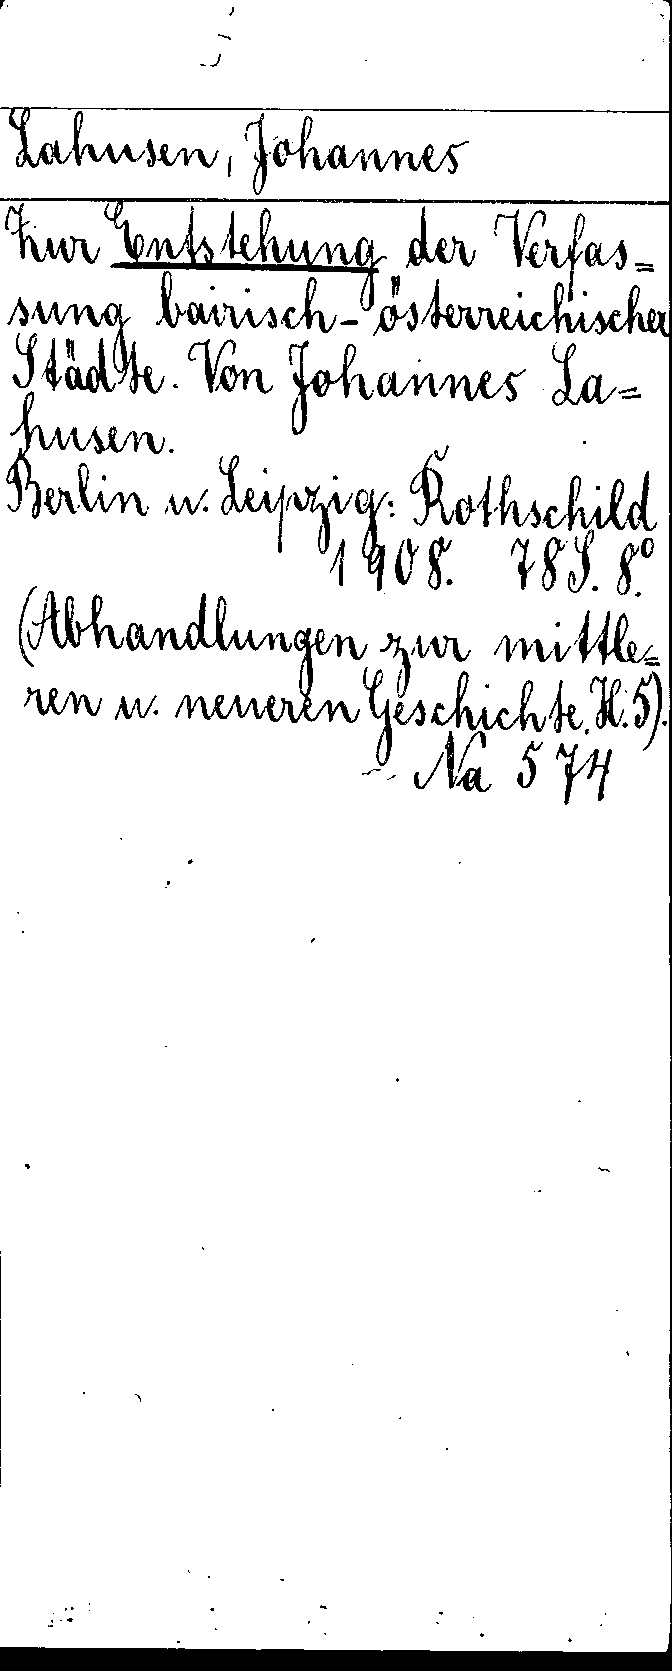 Lahusen, Johannes
Zur Entstehung der Verfas=
sung bairisch-österreichischer
Städte. Von Johannes La=
husen.
Berlin u. Leipzig: Rothschild
1908. 78 S. 8°.
(Abhandlungen zur mittle=
ren u. neueren Geschichte. H. 5).
Na 574